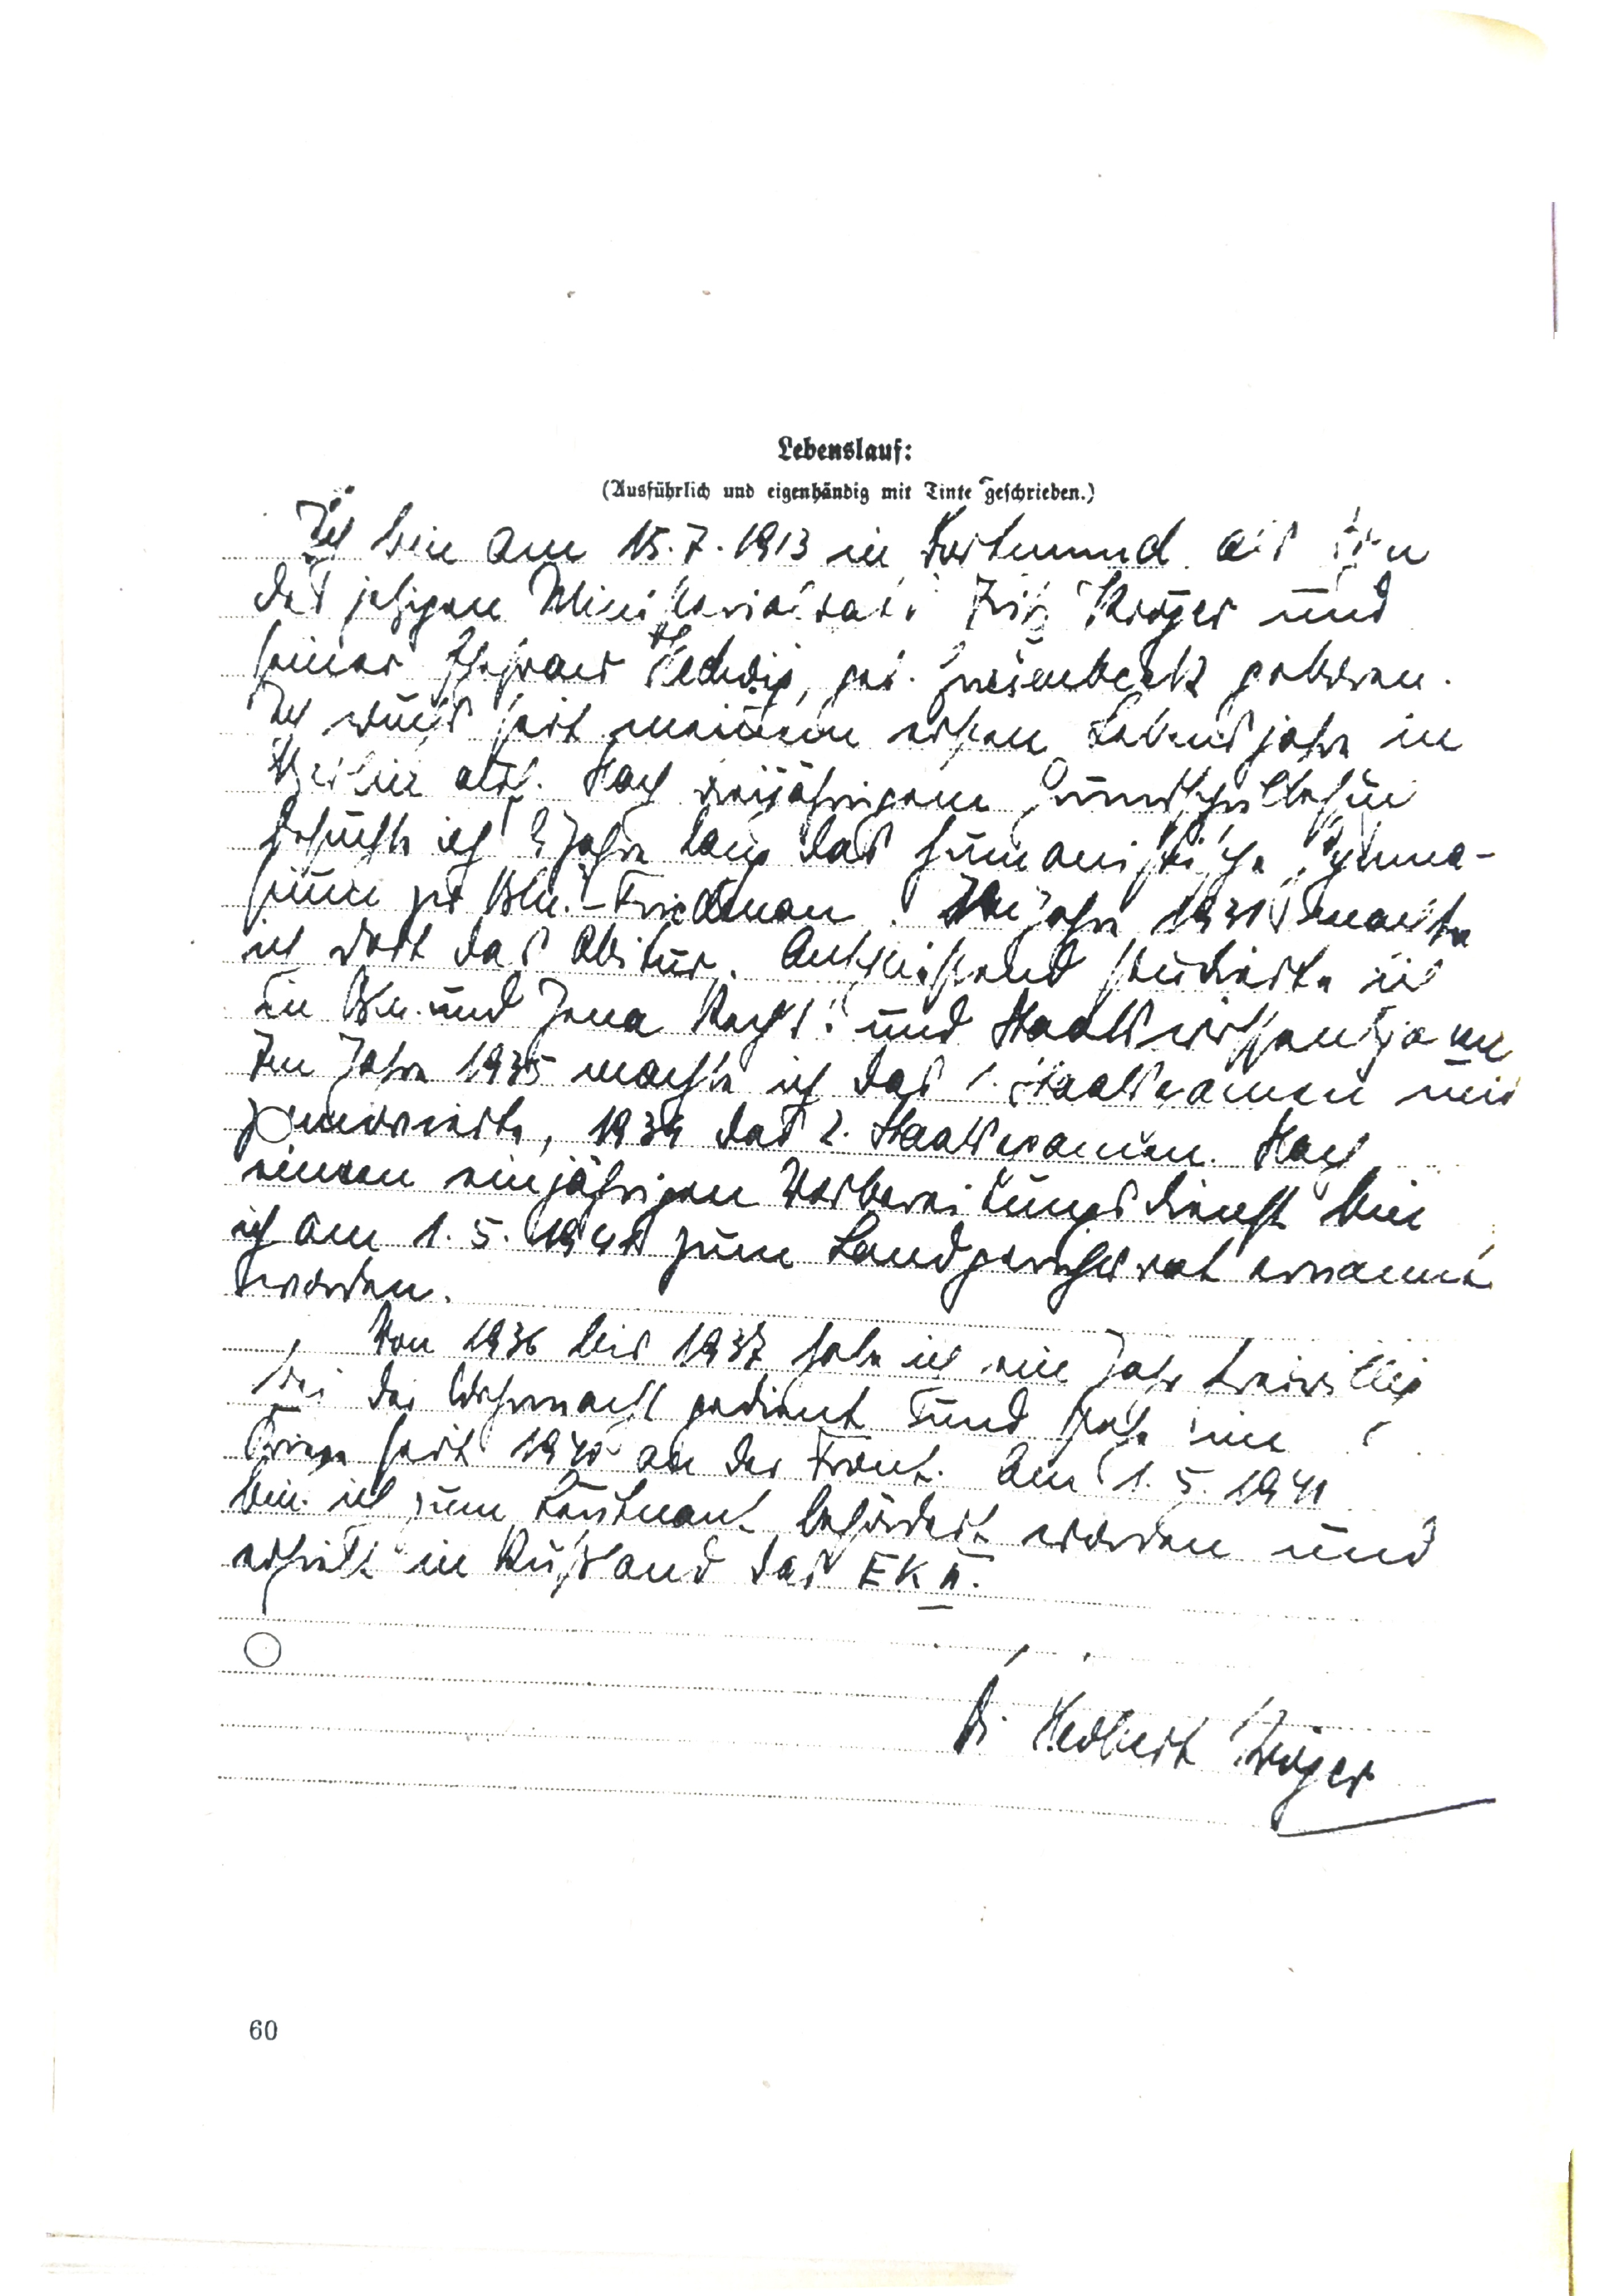 Lebenslauf:
(Ausführlich und eigenhändig mit Tinte geschrieben.)
Ich bin am 15.7.1913 in Dortmund als Sohn
des jetzigen Ministerialrats Fritz Kröger und
seiner Ehefrau Hedwig, geb. geboren.
Ich wuchs seit meinem ersten Lebensjahr in
Berlin auf. Nach dreijährigem Grundschulbesuch
besuchte ich 9 Jahre lang das humanistische Gymna-
sium zu Bln.-Friedenau. Im Jahre 1931 machte
ich dort das Abitur. Anschließend studierte ich
in Bln. und Jena Rechts- und Staatswissenschaften
Im Jahre 1935 machte ich das 1. Staatsexamen und
promovierte, 1939 das 2. Staatsexamen. Nach
einem einjährigen Vorbereitungsdienst bin
ich am 1.5.1941 zum Landgerichtsrat ernannt
worden.
Von 1936 bis 1937 habe ich ein Jahr freiwillig
bei der Wehrmacht gedient und stehe im
Kriege seit 1940 an der Front. Am 1.5.1941
bin ich zum Leutnant befördert worden und
erhielt in Rußland das EK II.
Dr. Herbert Kröger
60